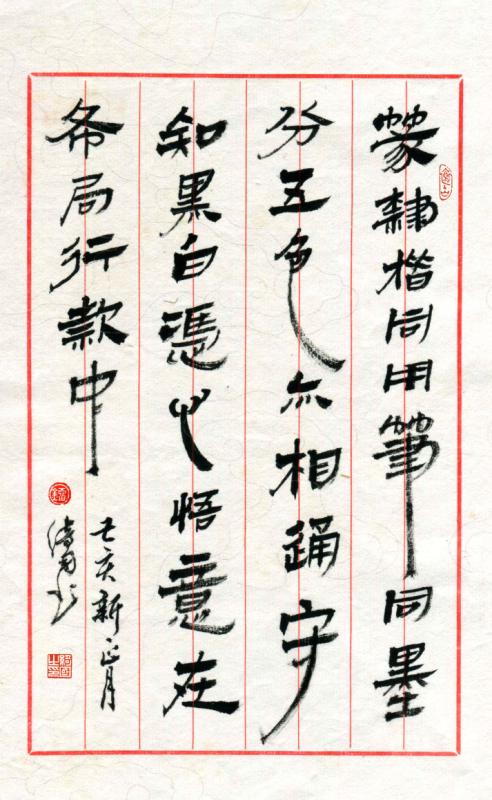 篆隸楷同用筆同墨
分五色亦相通守
知黑白憑心悟意在
布局行款中
亥新正月